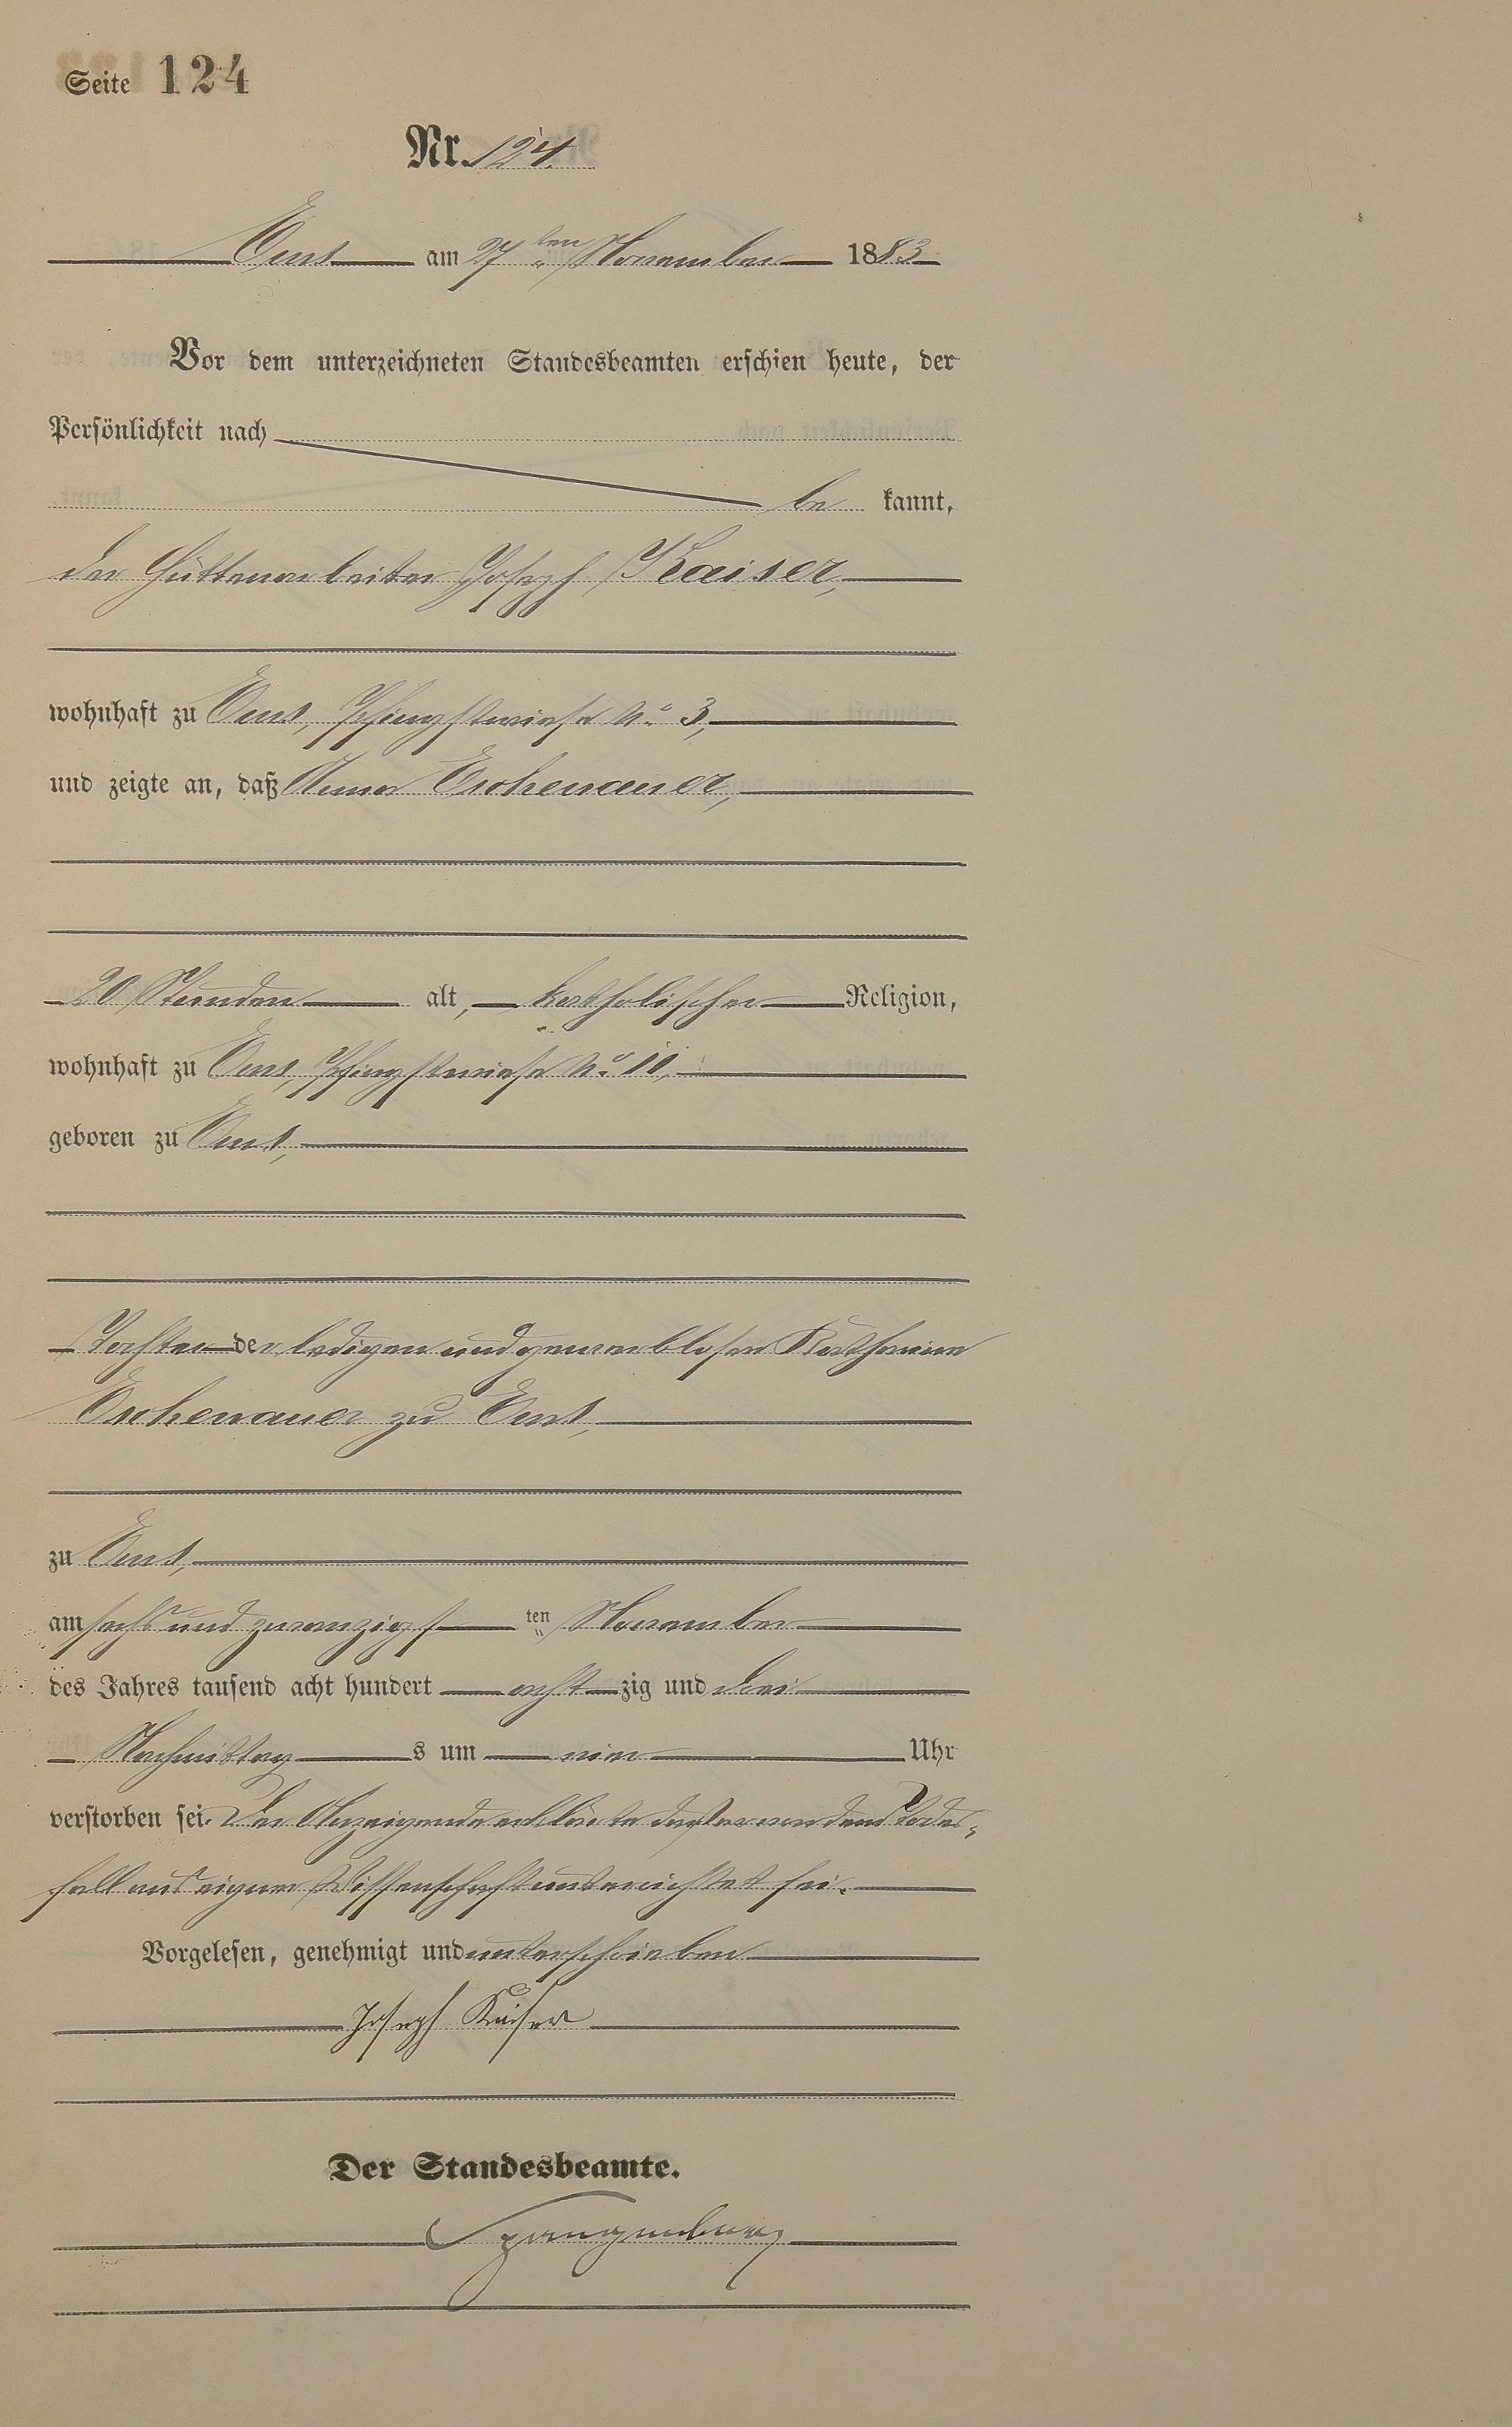 Seite 124
Nr. 124.
Ems am 27ten November 1883
Vor dem unterzeichneten Standesbeamten erschien heute, der
Persönlichkeit nach
be kannt,
der Hüttenarbeiter Joseph Kaiser,
wohnhaft zu Ems, Pfingstwiese No 3,
und zeigte an, daß Anna Eschenauer,
20 Stunden alt, katholischer Religion,
wohnhaft zu Ems, Pfingstwiese No 11,
geboren zu Ems,
Tochter der ledigen und gewerblosen Katharina
Eschenauer zu Ems,
zu Ems,
am sechs und zwanzigsten November
des Jahres tausend acht hundert acht zig und drei
Nachmittags um vier Uhr
verstorben sei. Der Anzeigende erklärte daß er von dem Todes-
fall aus eigener Wissenschaft unterrichtet sei.
Vorgelesen, genehmigt und unterschrieben
Joseph Kaiser
Der Standesbeamte.
Spangenberg